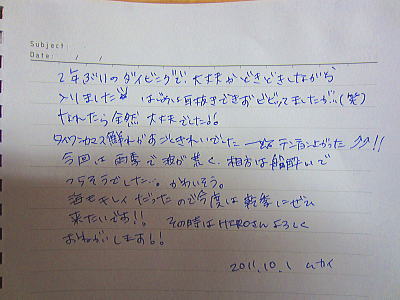 Subject:
Date: / /
2年ぶりのダイビングで大丈夫かどきどきしながら
入りました はじめは耳抜きできずビビってましたが…(笑)
なれたら全然大丈夫でした!!
タイワンカマス鮮れがすごときれいでした テンション上がった↗↗!!
今回は雨季で波が荒く、相方は船酔いで
つらそうでした…。かわいそう。
海もキレイだったので今度は乾季にぜひ
来たいです!! その時はHEROさんよろしく
おねがいします!!
2011.10.1 ムカイ